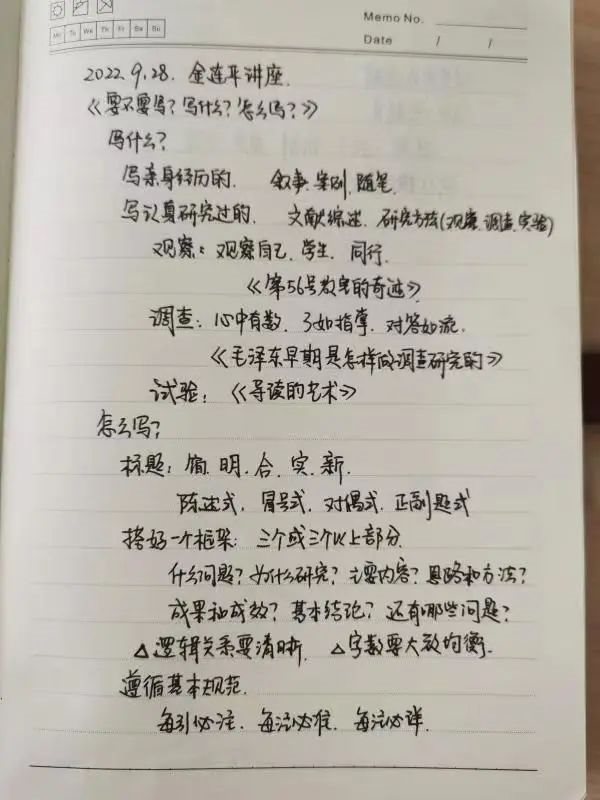 Memo No.
Mo Tu We Th Fr Sa Su
Date / /
2022.9.28. 金连平讲座.
《要不要写？写什么？怎么写？》
写什么？
写亲身经历的. 叙事.案例.随笔.
写认真研究过的. 文献综述. 研究方法(观察.调查.实验)
观察：观察自己.学生.同行.
《第56号教室的奇迹》
调查：心中有数.了如指掌.对答如流.
《毛泽东早期是怎样做调查研究的》
试验：《导读的艺术》
怎么写？
标题：简.明.合.实.新.
陈述式.冒号式.对偶式.正副题式
搭好一个框架：三个或三个以上部分.
什么问题？为什么研究？主要内容？思路和方法？
成果和成效？基本结论？还有哪些问题？
△逻辑关系要清晰. △字数要大致均衡.
遵循基本规范.
每引必注.每注必准.每注必详.